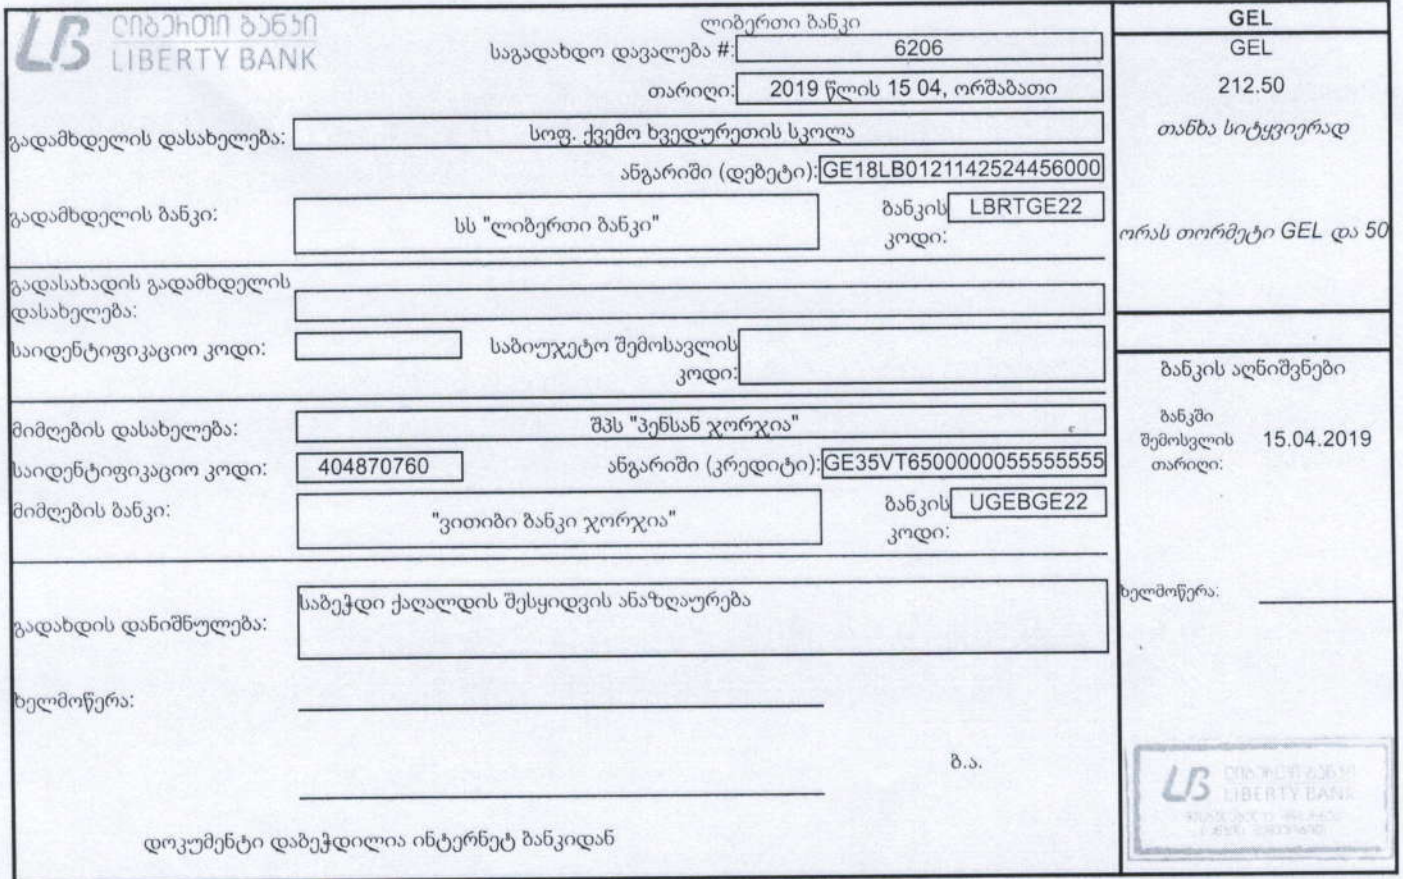 ლიბერთი ბანკი
LIBERTY BANK
ლიბერთი ბანკი
საგადახდო დავალება #: 6206
თარიღი: 2019 წლის 15 04, ორშაბათი
გადამხდელის დასახელება: სოფ. ქვემო ხვედურეთის სკოლა
ანგარიში (დებეტი): GE18LB0121142524456000
გადამხდელის ბანკი: სს "ლიბერთი ბანკი" ბანკის კოდი: LBRTGE22
გადასახადის გადამხდელის
დასახელება:
საიდენტიფიკაციო კოდი: საბიუჯეტო შემოსავლის
კოდი:
მიმღების დასახელება: შპს "პენსან ჯორჯია"
საიდენტიფიკაციო კოდი: 404870760 ანგარიში (კრედიტი): GE35VT6500000055555555
მიმღების ბანკი: "ვითიბი ბანკი ჯორჯია" ბანკის კოდი: UGEBGE22
გადახდის დანიშნულება: საბეჭდი ქაღალდის შესყიდვის ანაზღაურება
ხელმოწერა:
ბ.ა.
დოკუმენტი დაბეჭდილია ინტერნეტ ბანკიდან
GEL
GEL
212.50
თანხა სიტყვიერად
ორას თორმეტი GEL და 50
ბანკის აღნიშვნები
ბანკში
შემოსვლის 15.04.2019
თარიღი:
ხელმოწერა:
ლიბერთი ბანკი
LIBERTY BANK